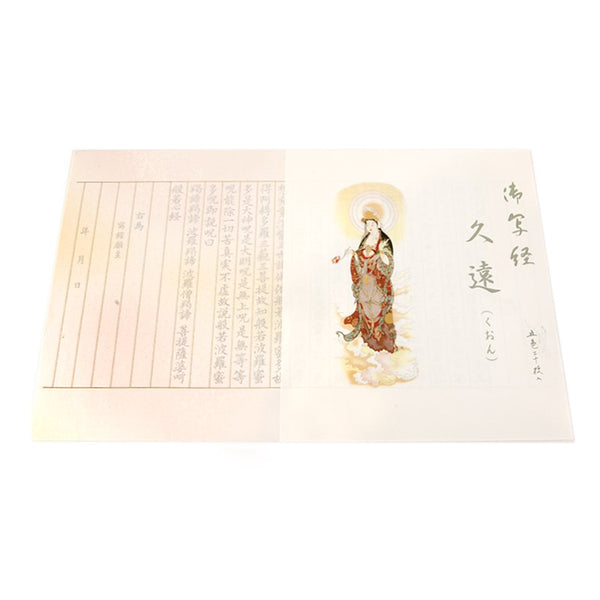 御写経
久遠
（くおん）
得阿耨多羅三藐三菩提故知般若波羅蜜
多是大神呪是大明呪是無上呪是無等等
呪能除一切苦真実不虚故説般若波羅蜜
多呪即説呪曰
羯諦羯諦 波羅羯諦 波羅僧羯諦 菩提薩婆訶
般若心経
右為
年 月 日